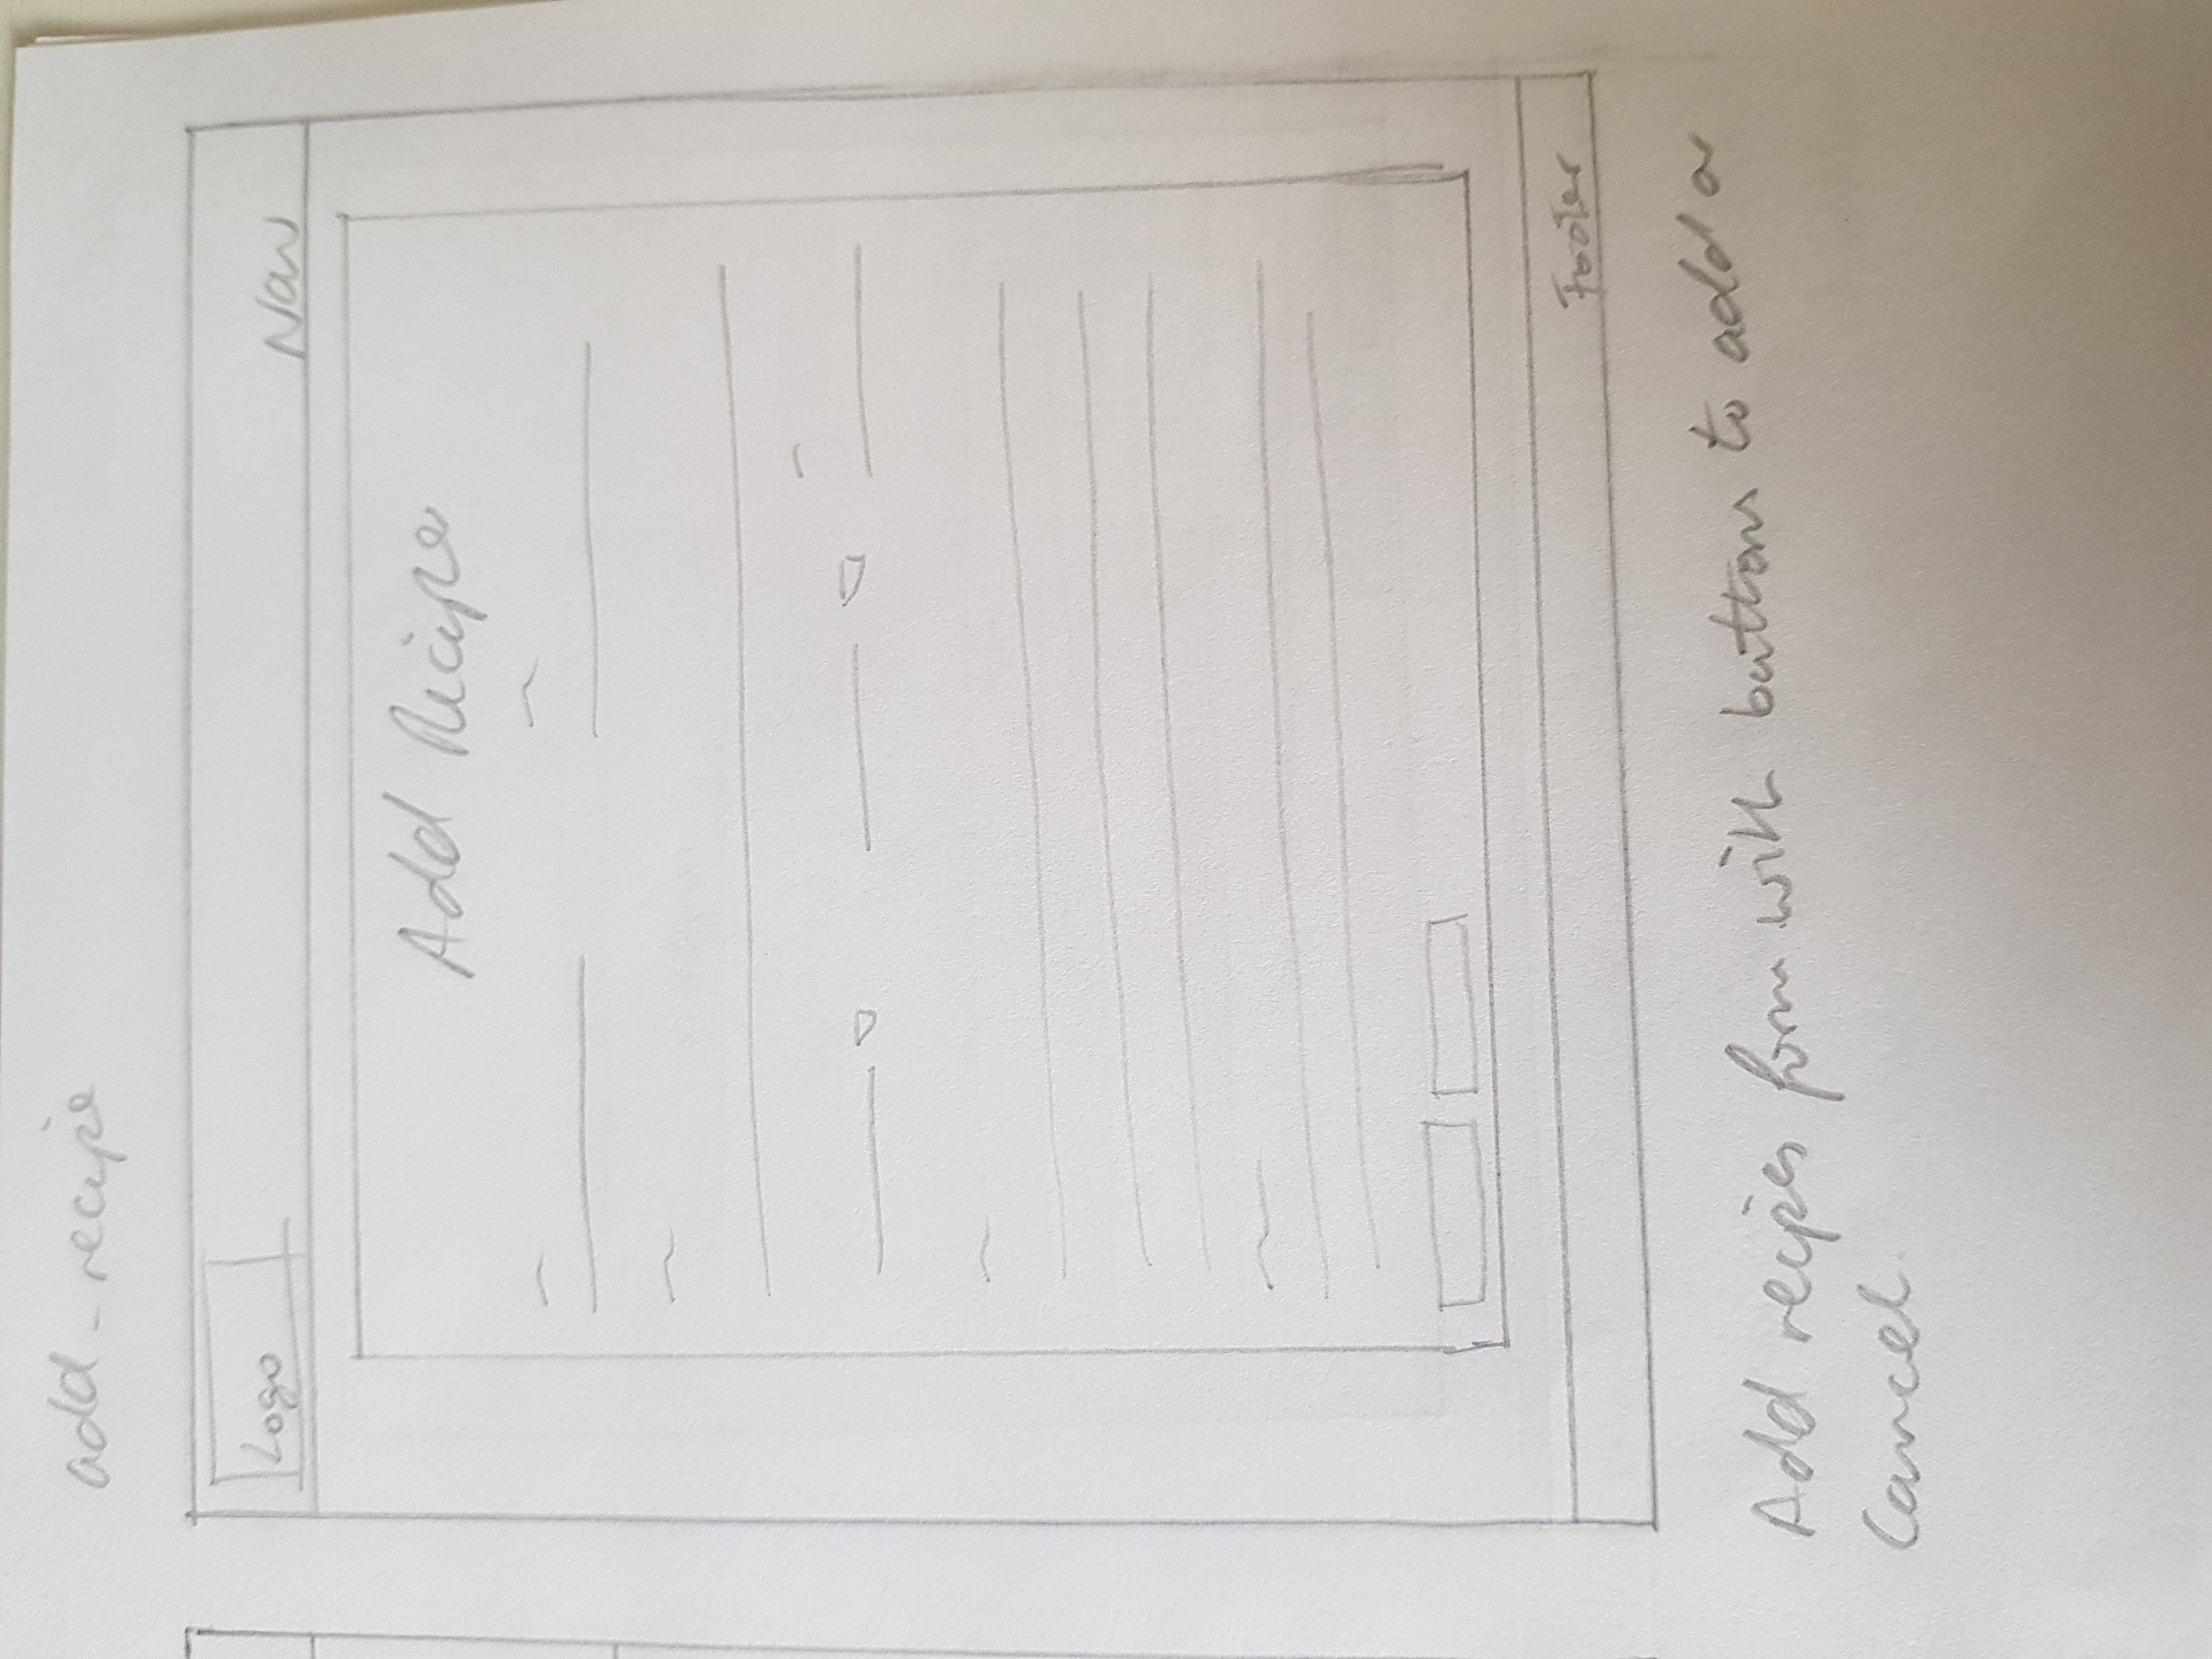 add_recipe
Logo
Nav
Add Recipe
Footer
Add recipes form with buttons to add or
Cancel.